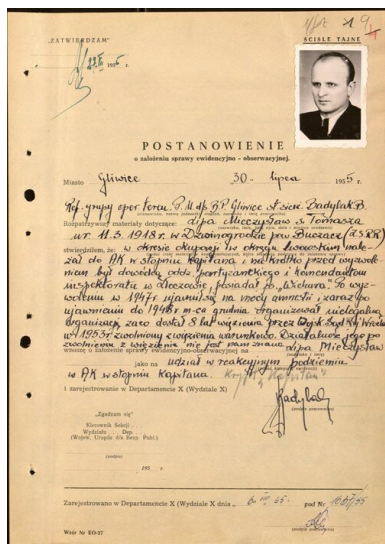 „ZATWIERDZAM"
ŚCIŚLE TAJNE
195 r.
POSTANOWIENIE
o założeniu sprawy ewidencyjno - obserwacyjnej.
Miasto Gliwice 30 - lipca 1955 r.
Ref. grupy oper. P.U. ds. B.P. Gliwice st. sierż. Badylak B.
Rozpatrzywszy materiały dotyczące: Lipa Mieczysław s. Tomasza
ur. 11.3.1918 r. w Dźwinogrodzie pow. Buczacz (ZSRR)
stwierdziłem, że: w okresie okupacji w okręgu lwowskim nale-
żał do AK w stopniu Kapitana i na krótko przed wyzwole-
niem był dowódcą oddz. partyzanckiego i komendantem
inspektoratu w Złoczowie, posiadał ps. „Wichura". Po wy-
zwoleniu w 1947 r. ujawnił się na mocy amnestii i zaraz po
ujawnieniu do 1948 r. m-ca grudnia organizował nielegalną
organizację za co dostał 8 lat więzienia przez Wojsk. Sąd Rej.
w 1953 r. zwolniony z więzienia warunkowo. Działalność jego po
zwolnieniu z więzienia nie jest nam znana
wnoszę o założenie sprawy ewidencyjno-obserwacyjnej na Lipa Mieczysław
jako na udział w reakcyjnym podziemiu
w AK w stopniu Kapitana. Krypt. „Kapitan"
i zarejestrować w Departamencie X (Wydziale X)
Badylak
„Zgadzam się"
Kierownik Sekcji
Wydziału Dep.
(Wojew. Urzędu d/s Bezp. Publ.)
195 r.
Zarejestrowano w Departamencie X (Wydziale X dnia 6. VIII 55 pod Nr 1657/55
Wzór Nr EO-37